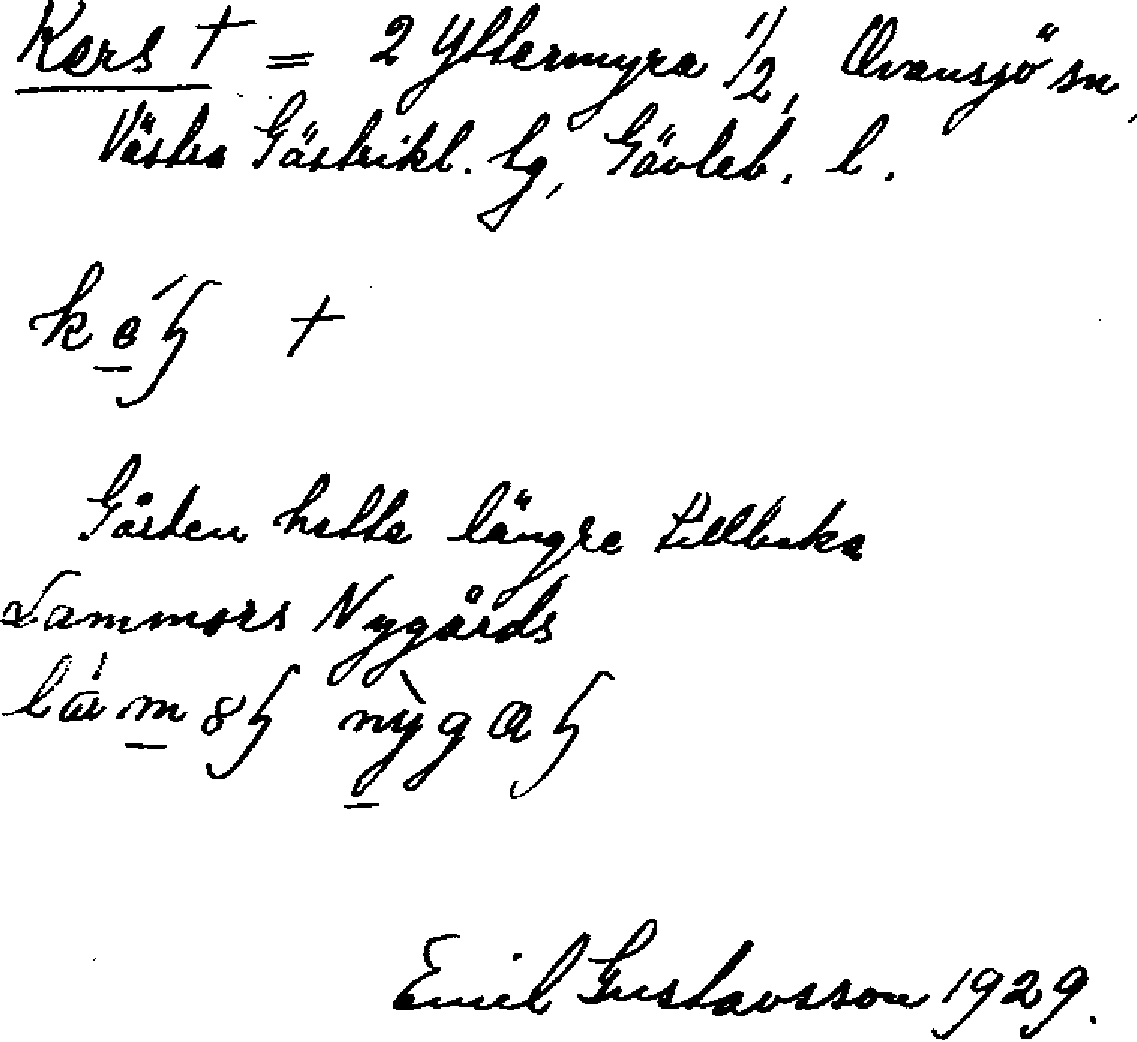 Kers † = 2 Yttermyra 1/2, Ovansjö sn,
Västra Gästrikl. tg, Gävleb. l.
ké̱ꞩ †
Gården hette längre tillbaka
Lammors Nygårds
nỳga
Emil Gustavsson 1929.